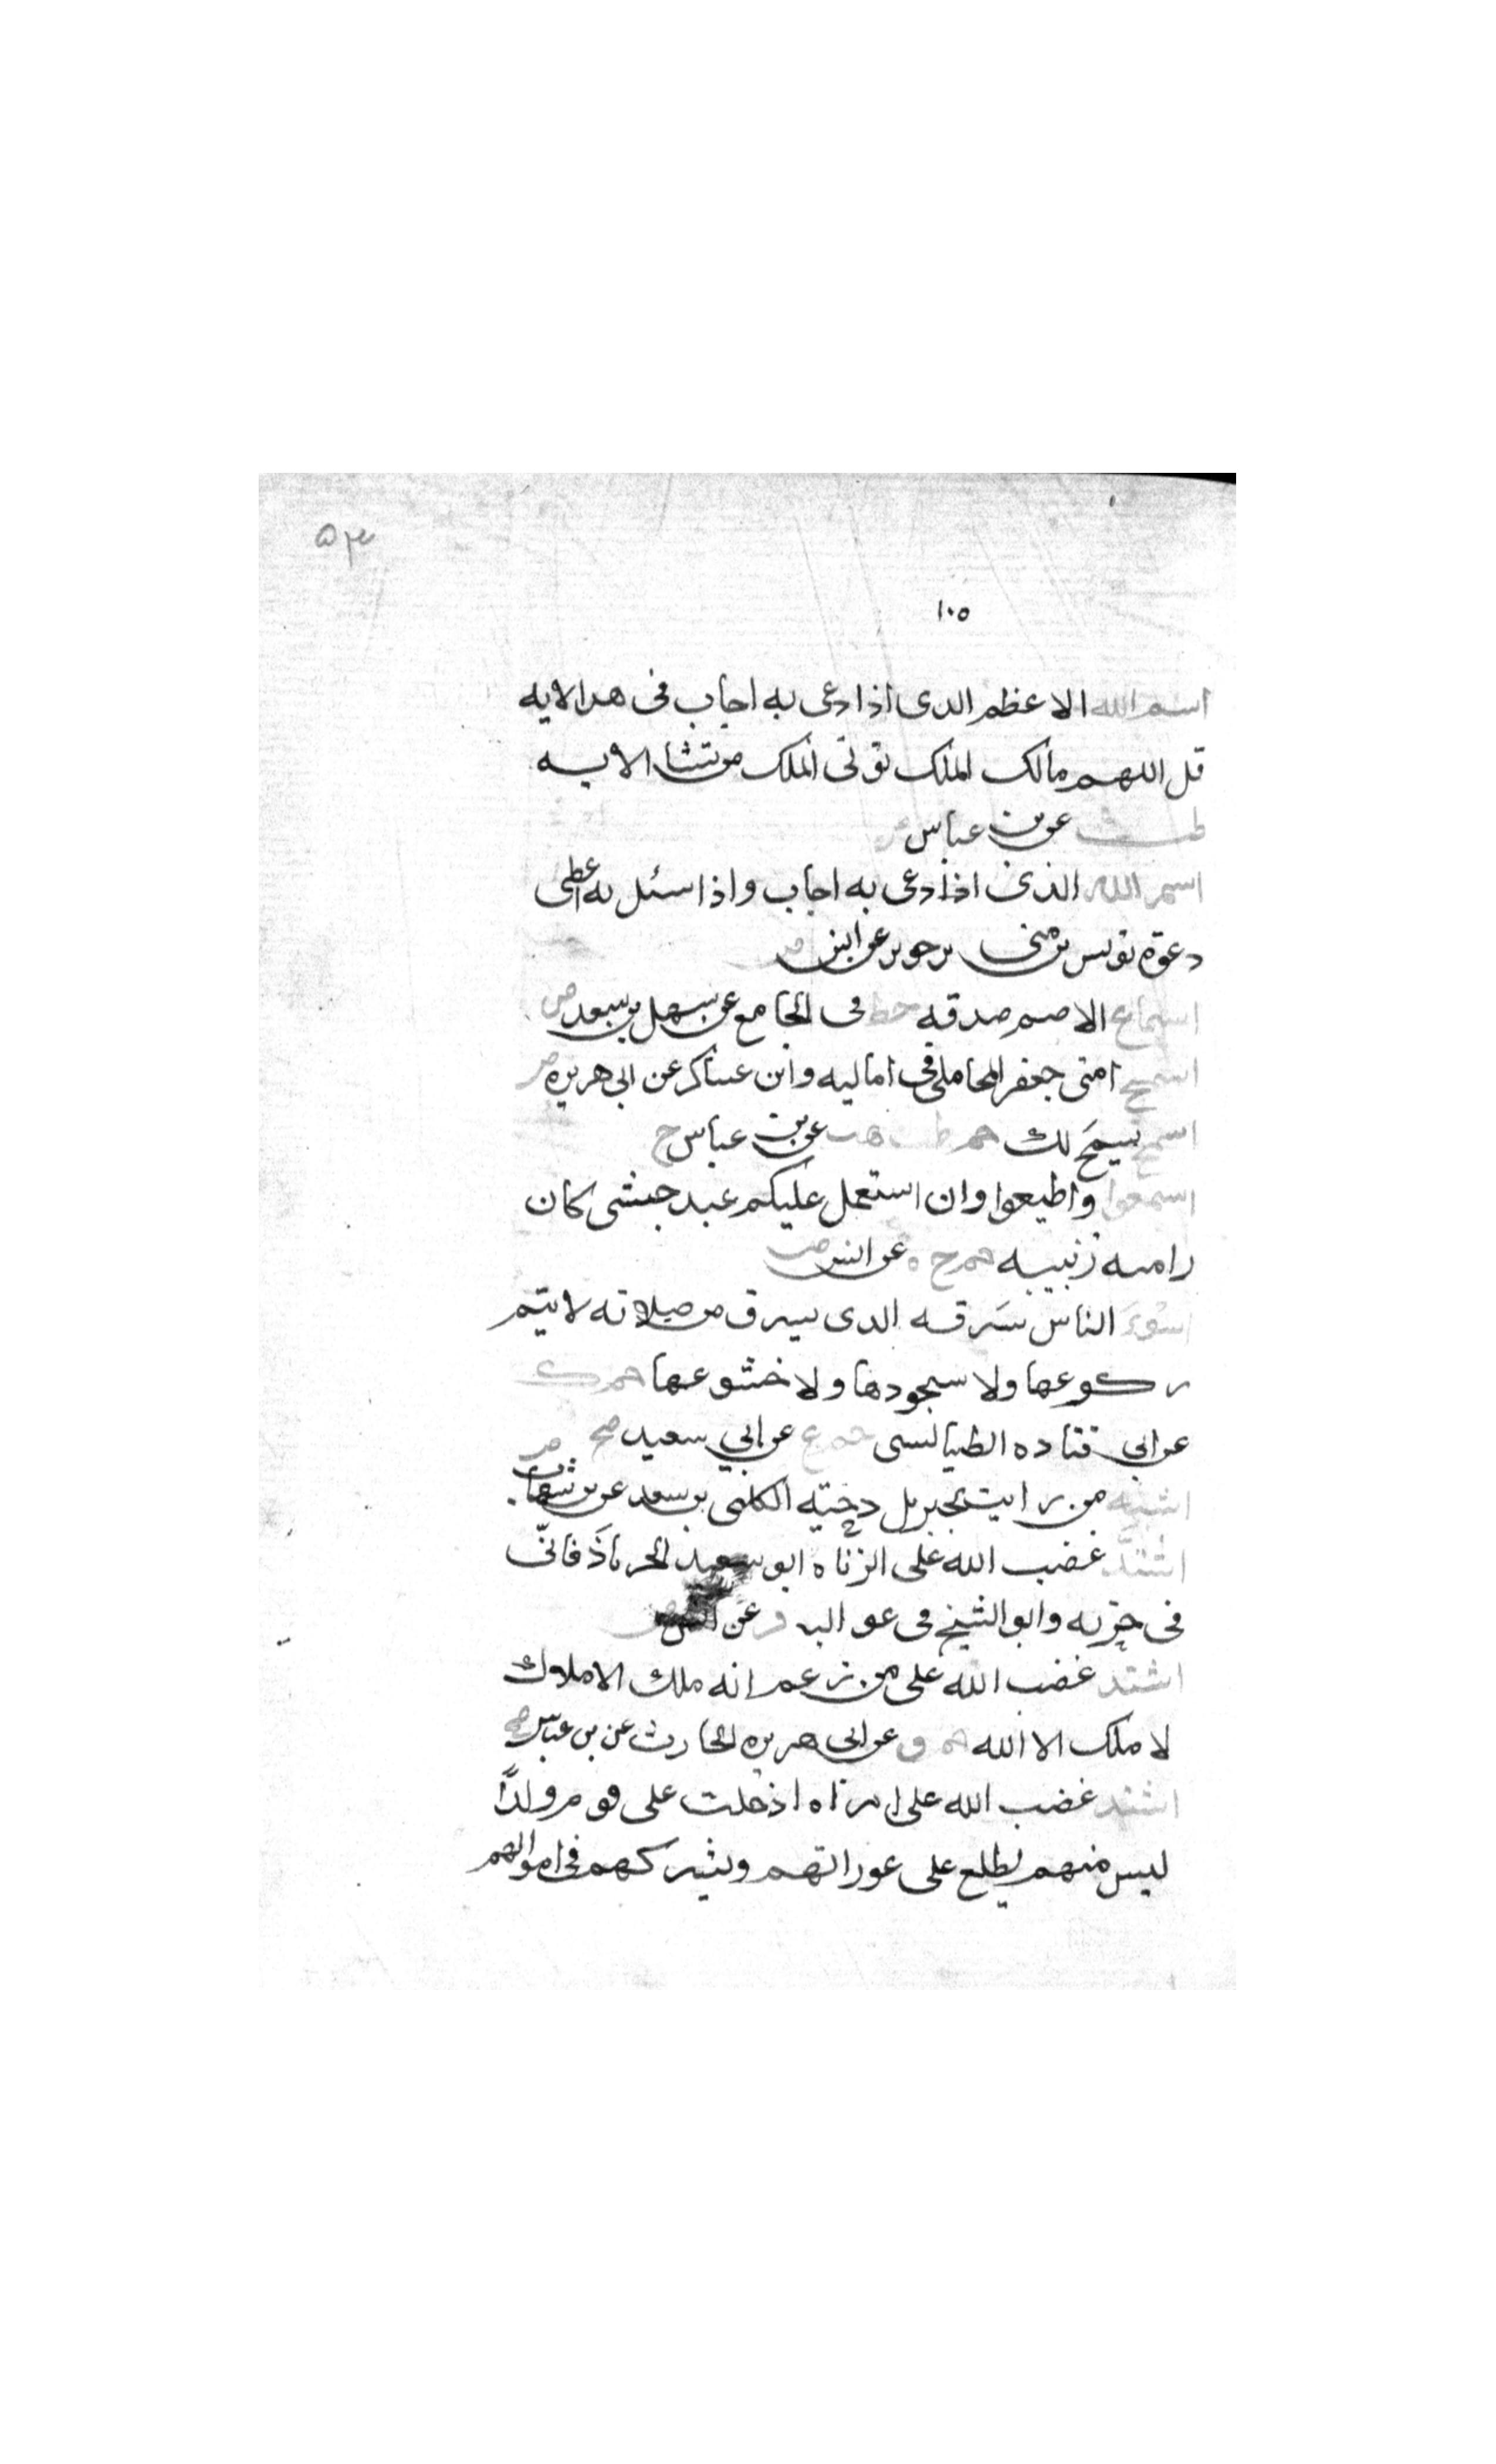 ٥٣
١٠٥
اسم الله الاعظم الدى اذا دعى به اجاب فى هدا الايه
قل اللهم مالك الملك توتى الملك من تشا الايه
طب عن بن عباس
اسم الله الذى اذا دعى به اجاب واذا سئل به اعطى
دعوة يونس بن متى بن جرير عن
اسماع الاصم صدقه خط فى الجامع عن سهل بن سعد ض
اسمح امتى جعفر المحاملى فى اماليه وابن عساكر عن ابى هريره ض
اسمح يسمح لك حم طب هب عن بن عباس ح
اسمعوا واطيعوا وان استعمل عليكم عبد حبشى كان
راسه زبيبه حم خ ه عن انس ص
اسوء الناس سرقه الدى يسرق من صلاته لا يتم
ركوعها ولا سجودها ولا خشوعها حم ك
عن ابى قتاده الطيالسى حم ع عن ابي سعيد صح
اشبه من رايت بجبريل دحيه الكلبى بن سعد عن بن شهاب ض
اشتد غضب الله على الزناه ابو سعيد الجرباذقانى
فى جزيه وابو الشيخ فى عوالـيه فر عن انس
اشتد غضب الله على من زعم انه ملك الاملاك
لا ملك الا الله حم ق عن ابى هريره الحارث عن بن عباس صح
اشتد غضب الله على امراه ادخلت على قوم ولدًا
ليس منهم يطلع على عوراتهم ويشركهم فى اموالهم